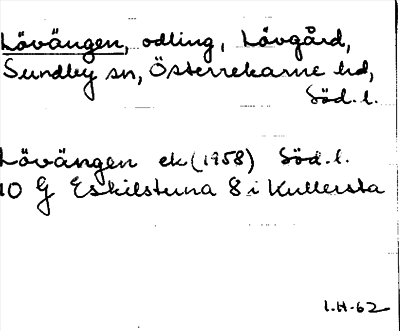 Lövängen, odling, Lövgård,
Sundby sn, Österrekarne hd,
Söd. l.
Lövängen ek (1958) Söd. l.
10 G Eskilstuna 8 i Kullersta
I.H-62